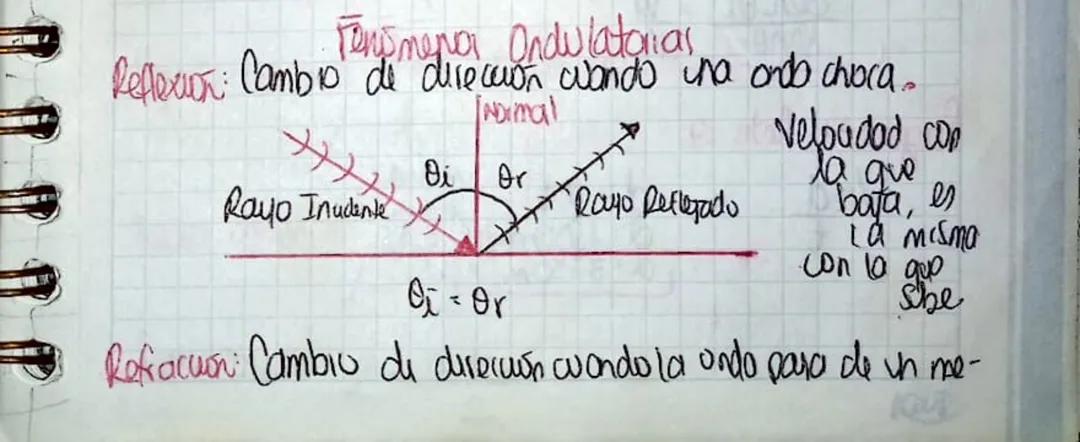 Fenómenos Ondulatorios
Reflexión: Cambio de dirección cuando una onda choca.
Normal
θi θr
Rayo Incidente
Rayo Reflejado
θi = θr
Velocidad con
la que
baja, es
la misma
con la que
sube
Refracción: Cambio de dirección cuando la onda pasa de un me-